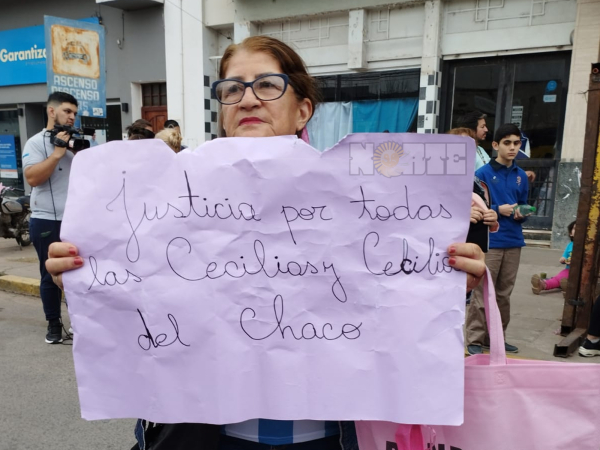 Garantiza
ASCENSO
DESCENSO
NORTE
Justicia por todas
las Cecilias y Cecilio
del Chaco